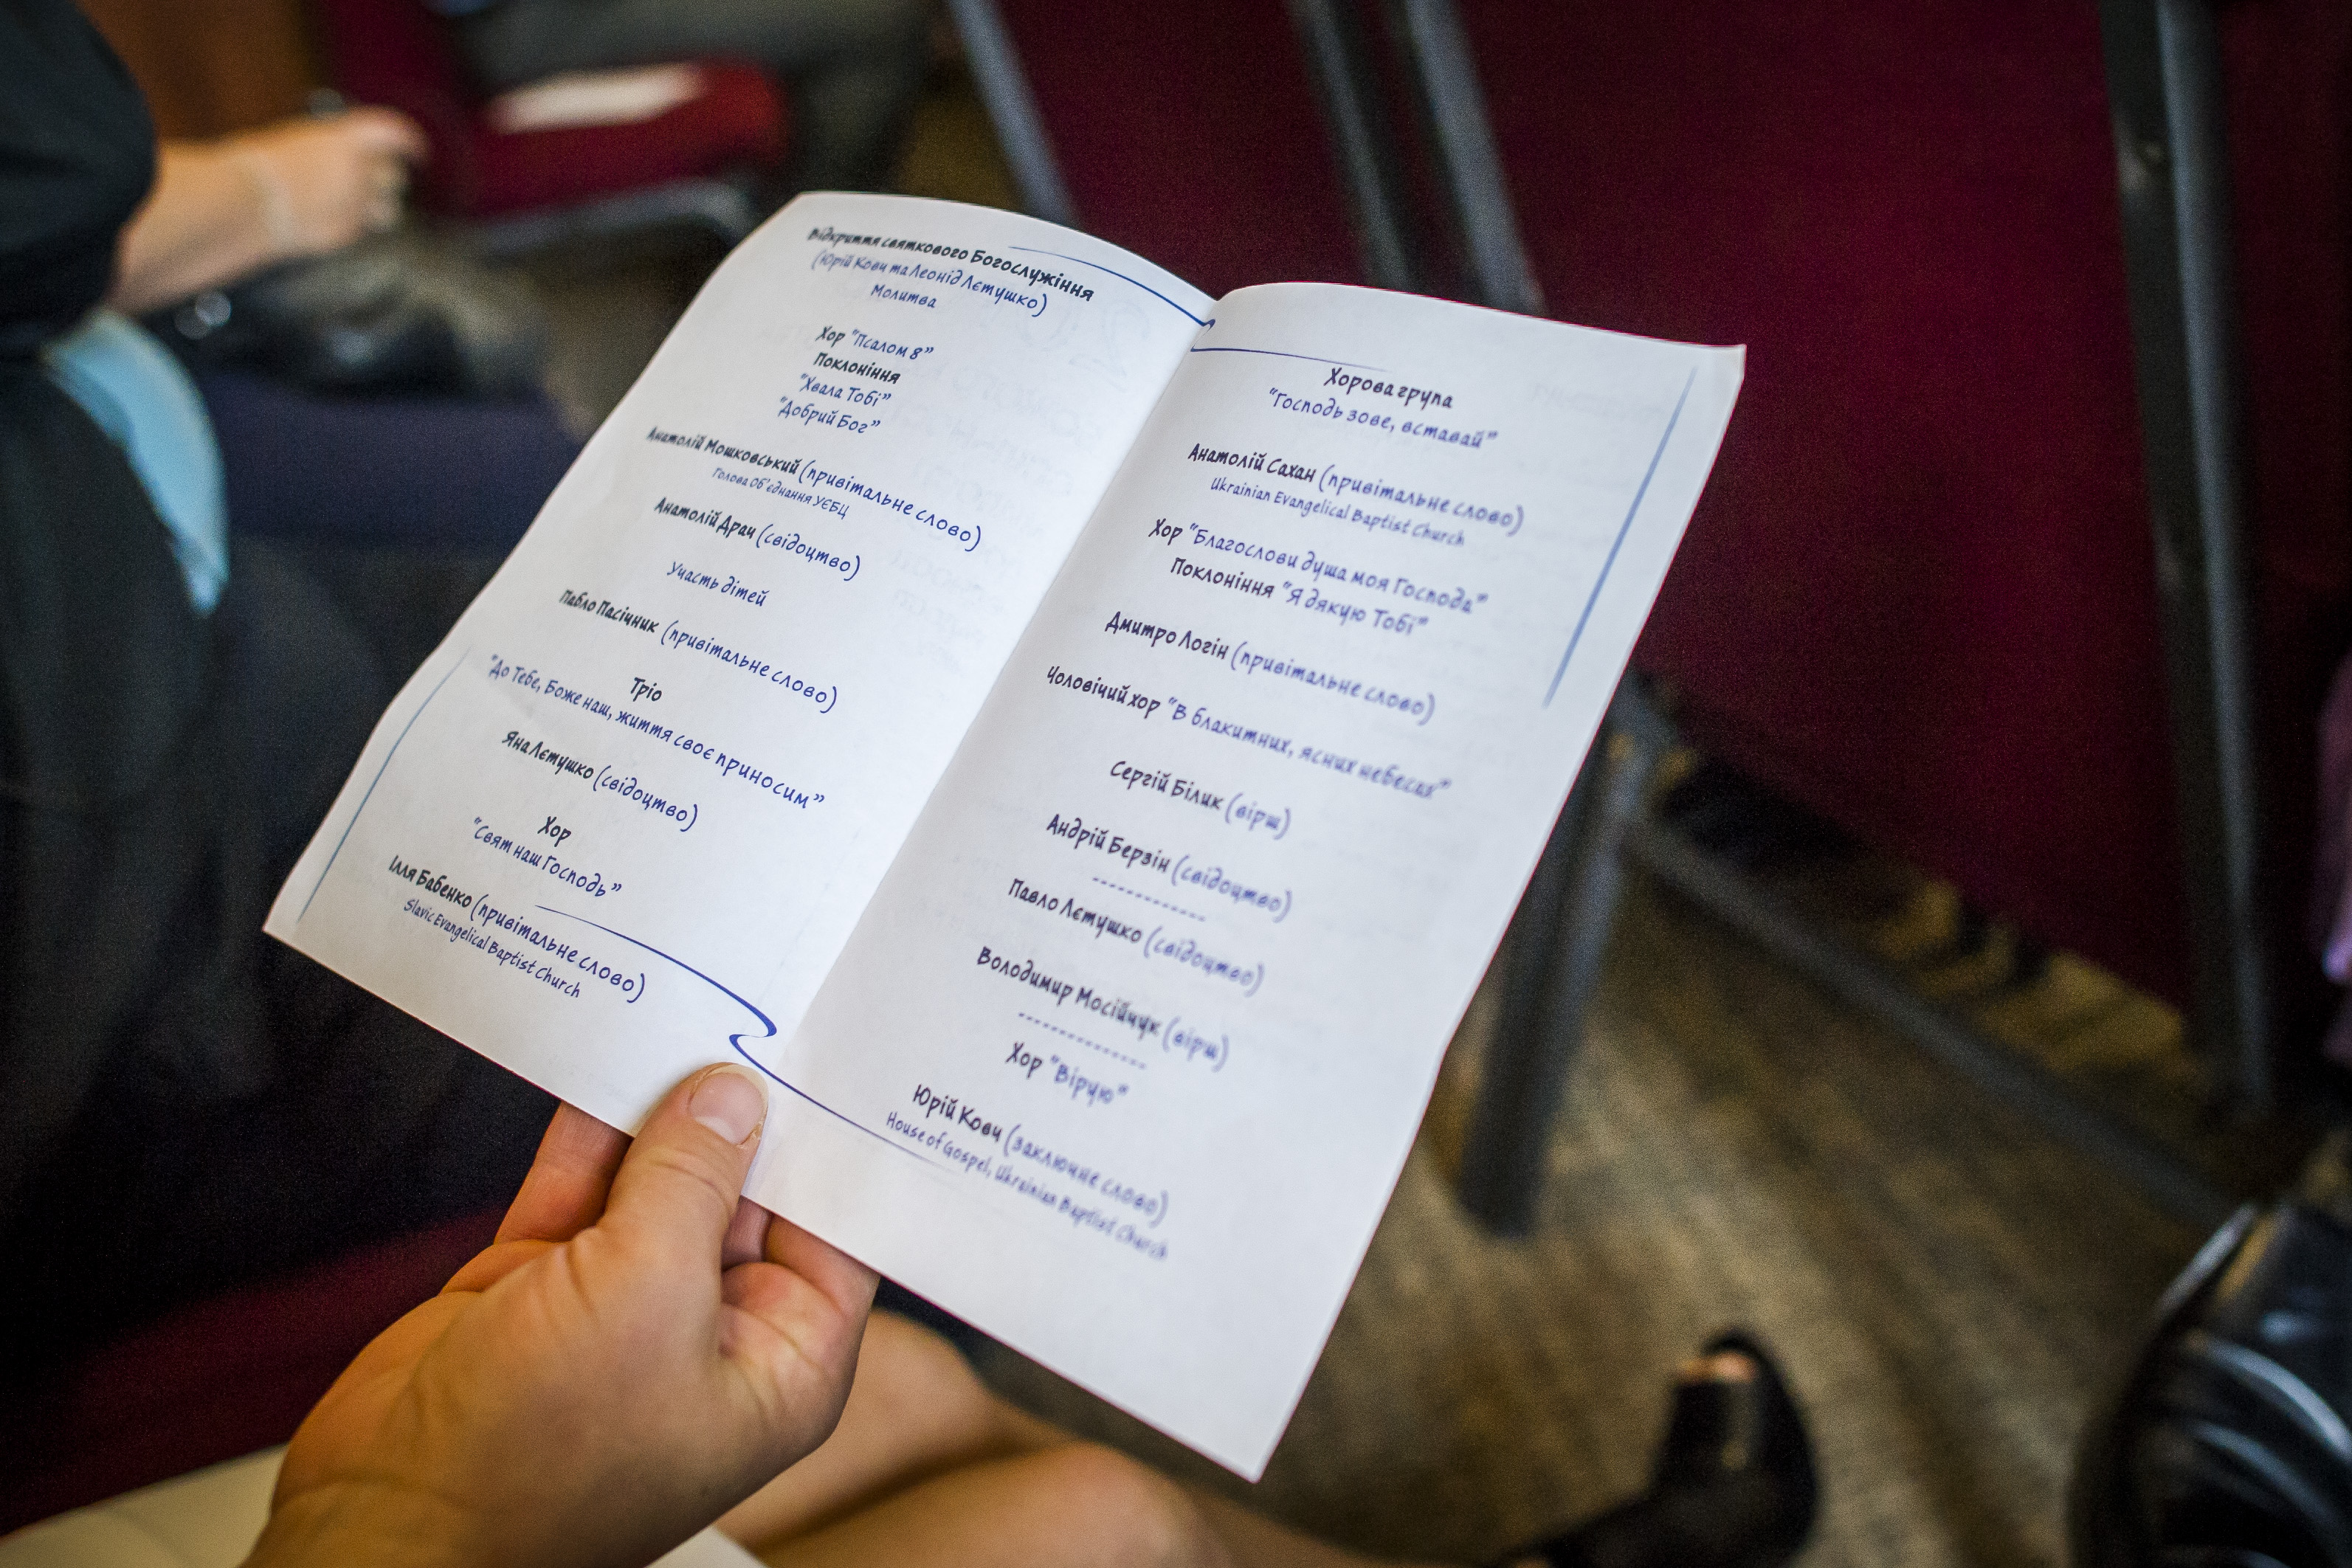 Відкриття святкового Богослужіння
(Юрій Ковч та Леонід Лєтушко)
Молитва
Хор "Псалом 8"
Поклоніння
"Хвала Тобі"
"Добрий Бог"
Анатолій Мошковський (привітальне слово)
Голова Об'єднання УЄБЦ
Анатолій Драч (свідоцтво)
Участь дітей
Пабло Пасічник (привітальне слово)
Тріо
"До Тебе, Боже наш, життя своє приносим"
Яна Лєтушко (свідоцтво)
Хор
"Свят наш Господь"
Ілля Бабенко (привітальне слово)
Slavic Evangelical Baptist Church
Хорова група
"Господь зове, вставай"
Анатолій Сахан (привітальне слово)
Ukrainian Evangelical Baptist Church
Хор "Благослови душа моя Господа"
Поклоніння "Я дякую Тобі"
Дмитро Логін (привітальне слово)
Чоловічий хор "В блакитних, ясних небесах"
Сергій Білик (вірш)
Андрій Берзін (свідоцтво)
------------
Павло Лєтушко (свідоцтво)
Володимир Мосійчук (вірш)
-------------
Хор "Вірую"
Юрій Ковч (заключне слово)
House of Gospel, Ukrainian Baptist Church